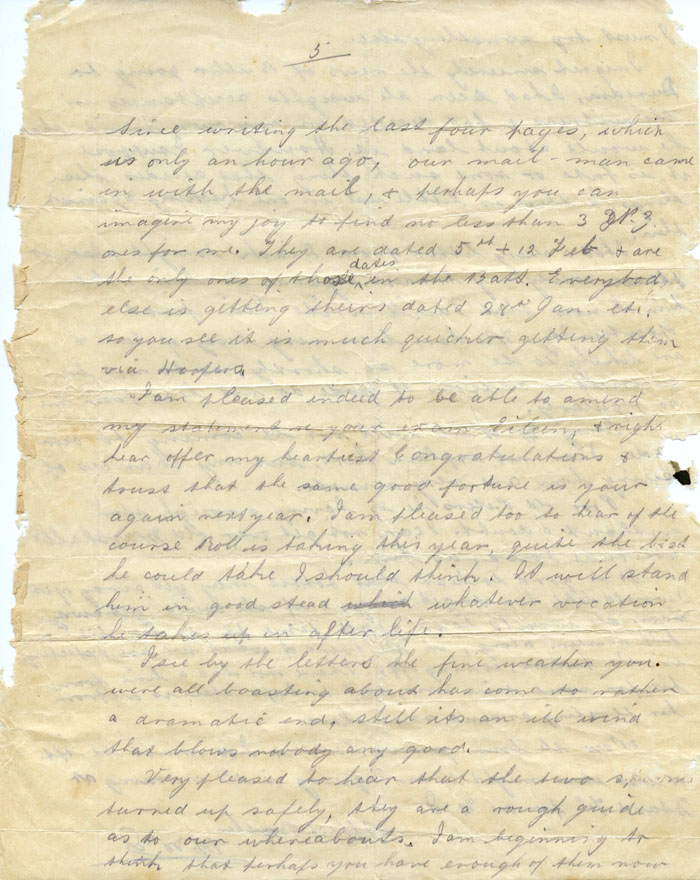 5
Since writing the last four pages, which
us only an hour ago, our mail-man came
in with the mail, & perhaps you can
imagine my joy to find no less than 3
ones for me. They are dated 5th & 12 Feb & are
the only ones of those dates in the Batt. Everybod
else is getting theirs dated 28th Jan. etc,
so you see it is much quicker getting them
via Hoopers.
I am pleased indeed to be able to amend
my statement re your exam Eileen, & righ
hear offer my heartiest Congratulations &
trust that the same good fortune is your
again next year. I am pleased too to hear of the
course Roll is taking this year, quite the best
he could take I should think. It will stand
him in good stead which whatever vocation
he takes up in after life.
I see by the letters the fine weather you
were all boasting about has come to rather
a dramatic end, still its an ill wind
that blows nobody any good.
Very pleased to hear that the two
turned up safely, they are a rough guide
as to our whereabouts. I am beginning to
think that perhaps you have enough of them now